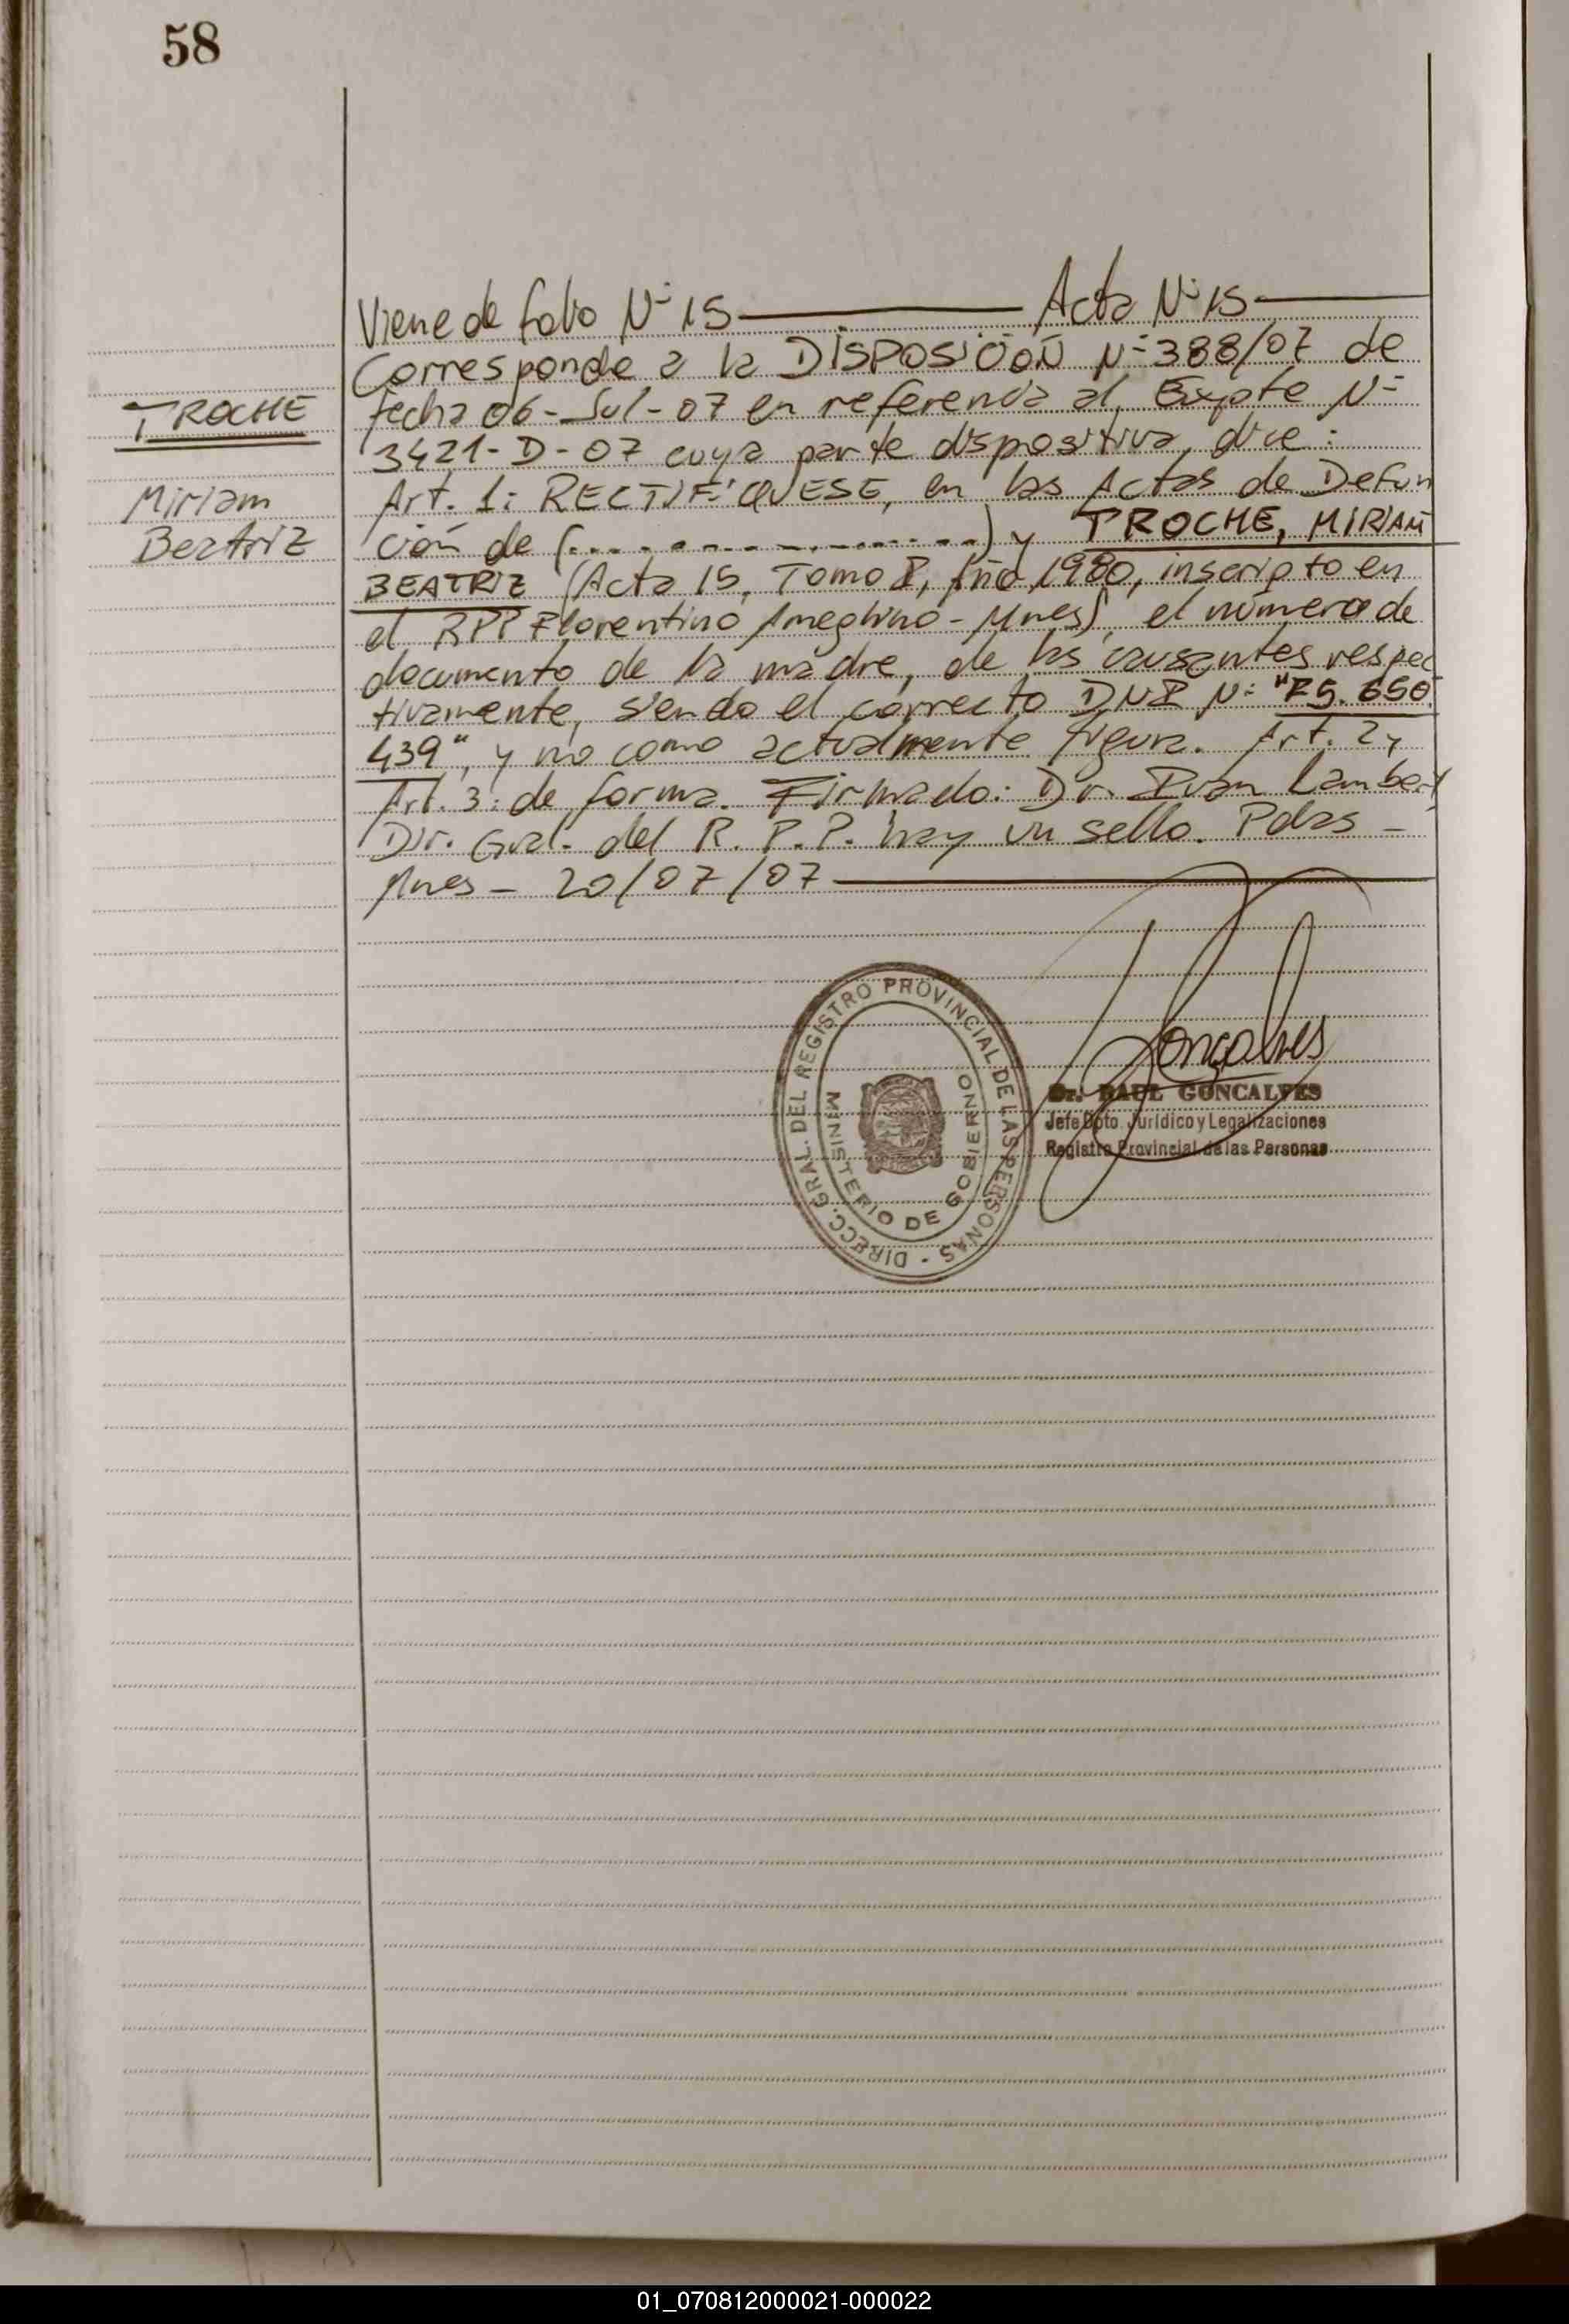 58
Viene de folio Nº 15 Acta Nº 15
Corresponde a la DISPOSICIÓN Nº 388/07 de
TROCHE
fecha 06-Jul-07 en referencia al Expte Nº
3421-D-07 cuya parte dispositiva dice:
Miriam
Art. 1: RECTIFIQUESE, en las Actas de Defun
Beatriz
ción de (..................) y TROCHE, MIRIAM
BEATRIZ (Acta 15, Tomo I, Año 1980, inscripto en
el RPP Florentino Ameghino - Mnes), el número de
documento de la madre, de los causantes respec
tivamente, siendo el correcto DNI Nº "75.650.
439", y no como actualmente figura. Art. 2 y
Art. 3: de forma. Firmado: Dr. Iván Lambert
Dir. Gral. del R.P.P. hay un sello. Pdas -
Mnes - 20/07/07
Gonçalves
Dr. RAUL GONCALVES
Jefe Dpto. Jurídico y Legalizaciones
Registro Provincial de las Personas
DIRECC. GRAL. DEL REGISTRO PROVINCIAL DE LAS PERSONAS -
MINISTERIO DE GOBIERNO
01_070812000021-000022